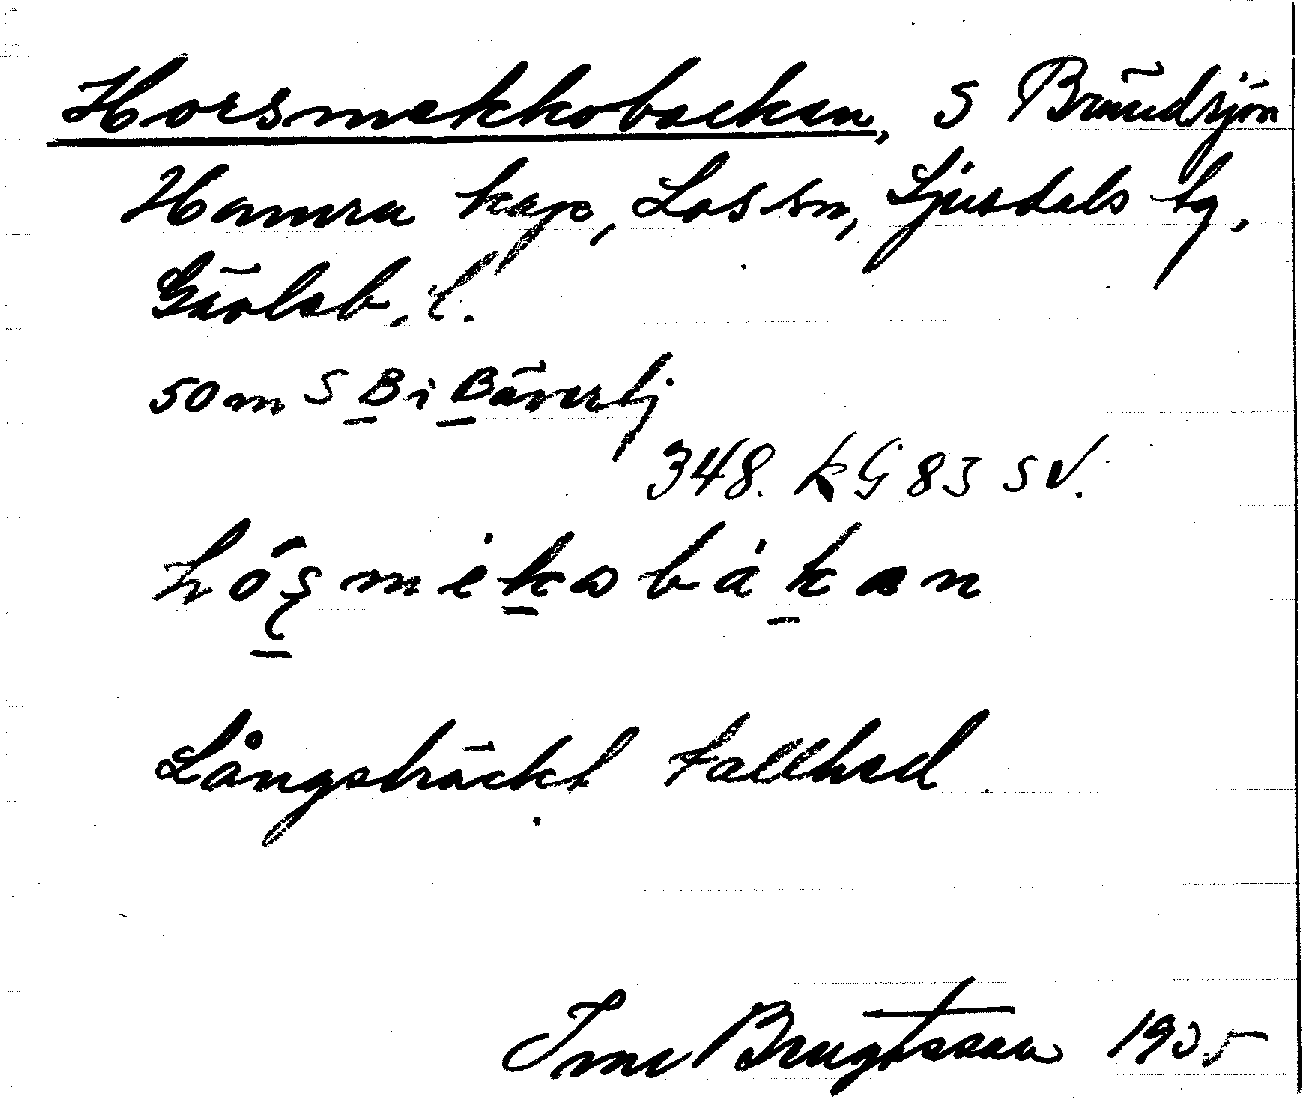 Horsmakkobacken, S Brändsjön
Hamra kap, Los sn, Ljusdals tg,
Gävleb. l.
50 m S B i Bäversj
348. kG 83 SV.
hósmèkobákan
Långsträckt tallhed
Bengtsson 1935